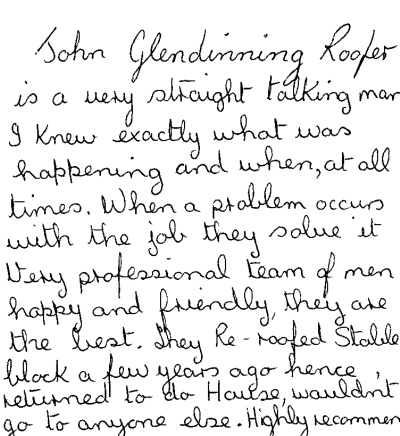 John Glendinning Roofer
is a very straight talking man
I knew exactly what was
happening and when, at all
times. When a problem occurs
with the job they solve it
Very professional team of men
happy and friendly, they are
the best. They Re-roofed Stable
block a few years ago hence,
returned to do House, wouldnt
go to anyone else. Highly recommen